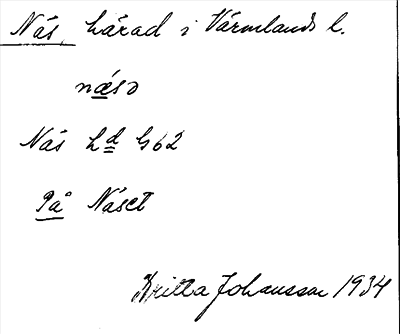 Näs härad i Värmlands l.
näsɔ
Näs hd G62
På Näset
Britta Johansson 1934